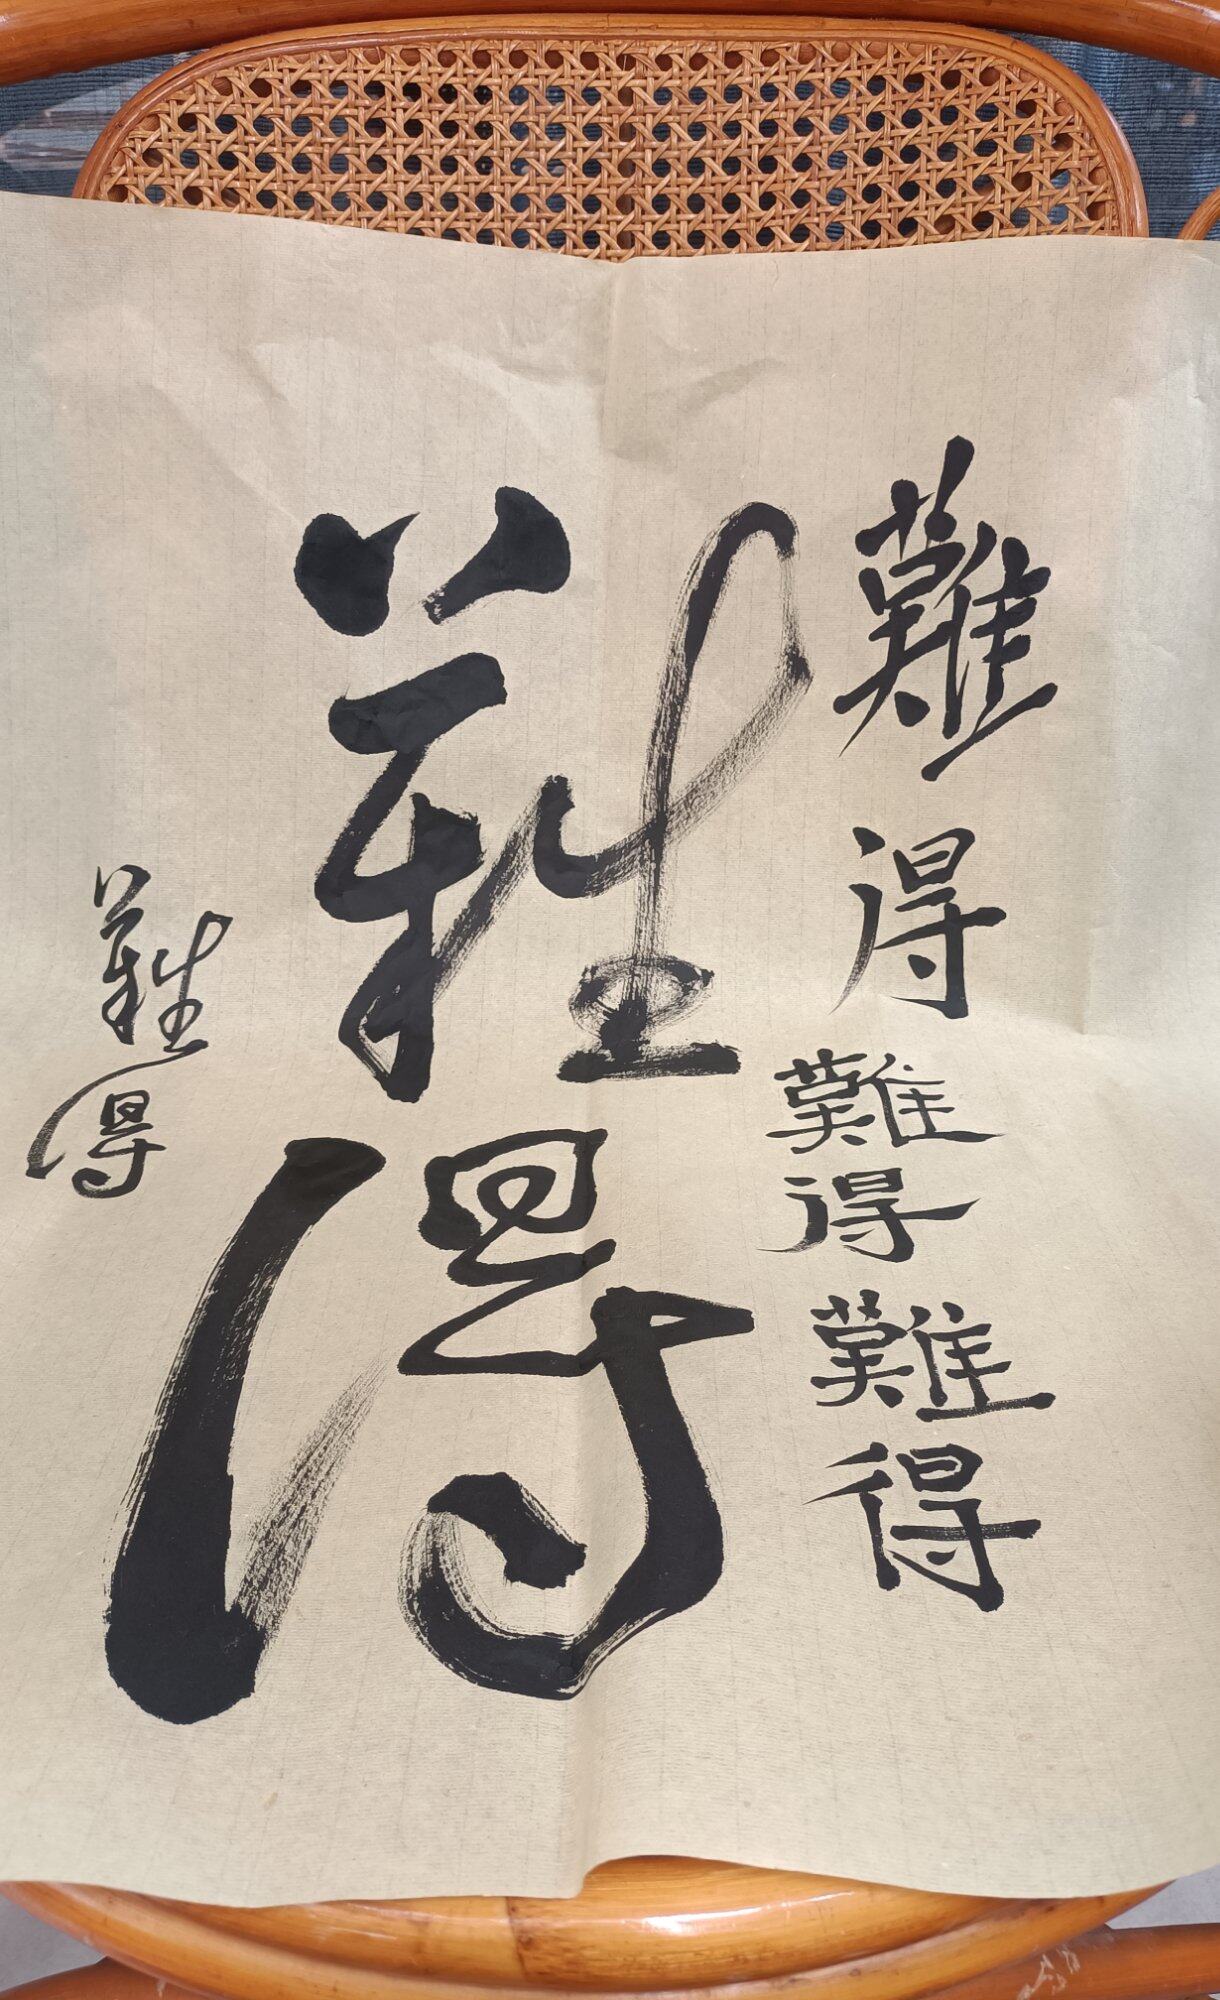 難得難得難得
難得
難得